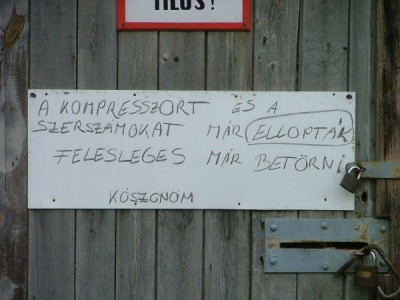 TILOS!
A KOMPRESSZORT ES A
SZERSZAMOKAT MÁR ELLOPTÁK
FELESLEGES MÁR BETÖRNI
KÖSZÖNÖM